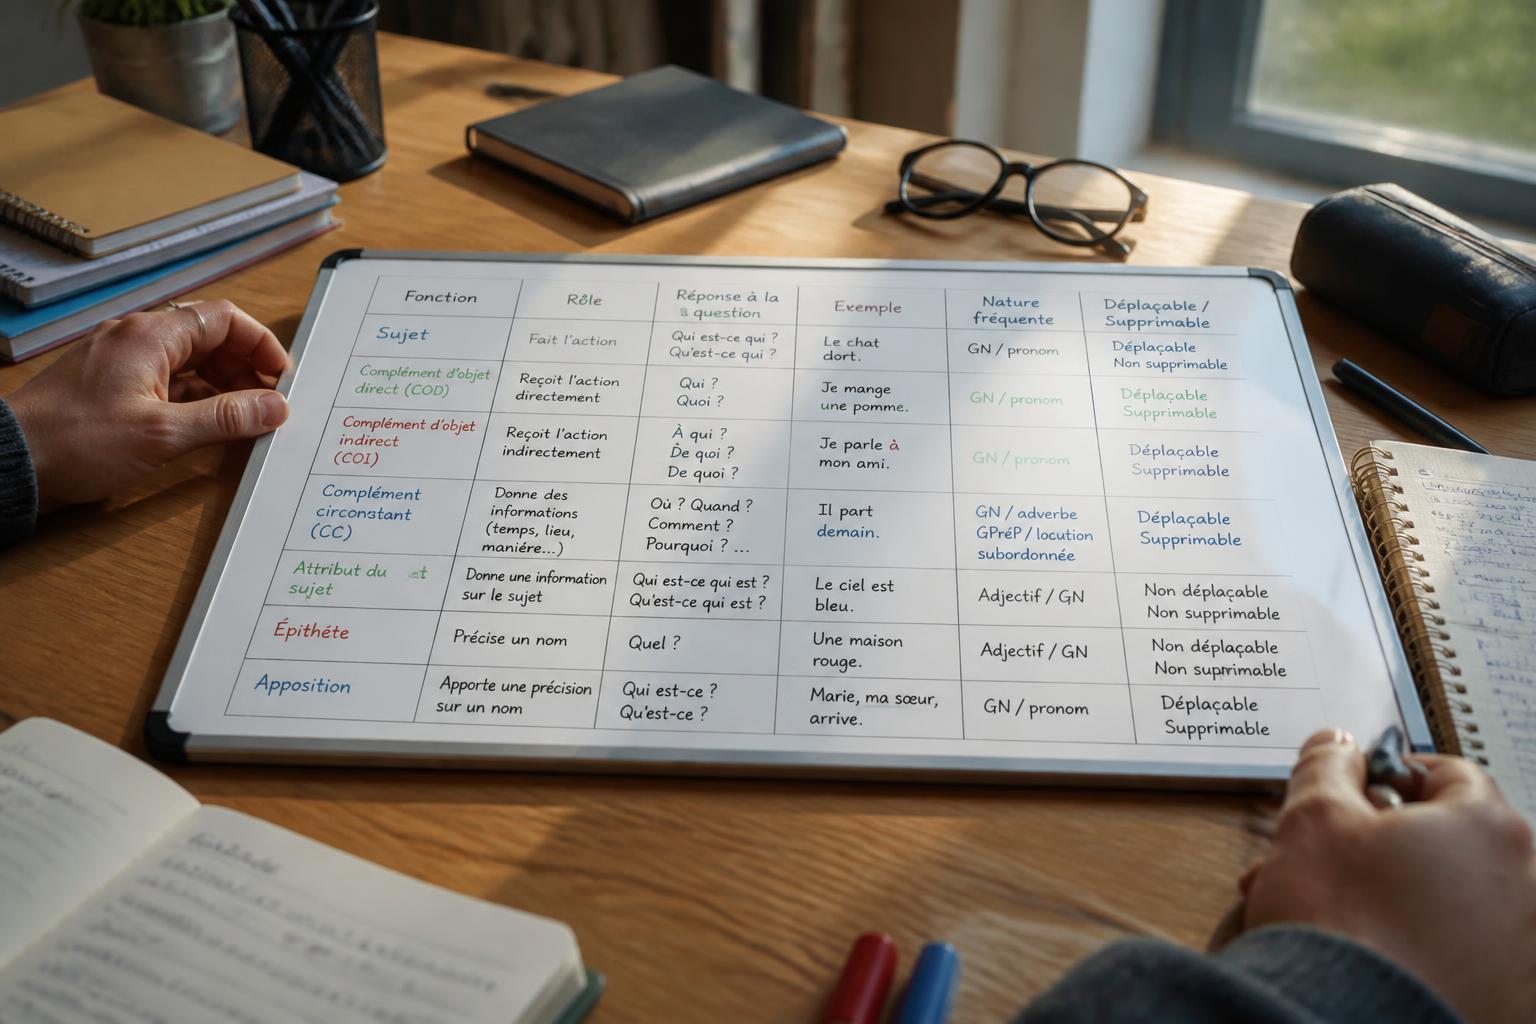 Fonction
Rôle
Réponse à la
question
Exemple
Nature
fréquente
Déplaçable /
Supprimable
Sujet
Fait l'action
Qui est-ce qui ?
Qu'est-ce qui ?
Le chat
dort.
GN / pronom
Déplaçable
Non supprimable
Complément d'objet
direct (COD)
Reçoit l'action
directement
Qui ?
Quoi ?
Je mange
une pomme.
GN / pronom
Déplaçable
Supprimable
Complément d'objet
indirect
(COI)
Reçoit l'action
indirectement
À qui ?
De qoi ?
De quoi ?
Je parle à
mon ami.
GN / pronom
Déplaçable
Supprimable
Complément
circonstant
(CC)
Donne des
informations
(temps, lieu,
maniére...)
Où ? Quand ?
Comment ?
Pourquoi ? ...
Il part
demain.
GN / adverbe
GPréP / locution
subordonnée
Déplaçable
Supprimable
Attribut du
sujet
Donne une information
sur le sujet
Qui est-ce qui est ?
Qu'est-ce qui est ?
Le ciel est
bleu.
Adjectif / GN
Non déplaçable
Non supprimable
Épithéte
Précise un nom
Quel ?
Une maison
rouge.
Adjectif / GN
Non déplaçable
Non suprimable
Apposition
Apporte une précision
sur un nom
Qui est-ce ?
Qu'est-ce ?
Marie, ma sœur,
arrive.
GN / pronom
Déplaçable
Supprimable